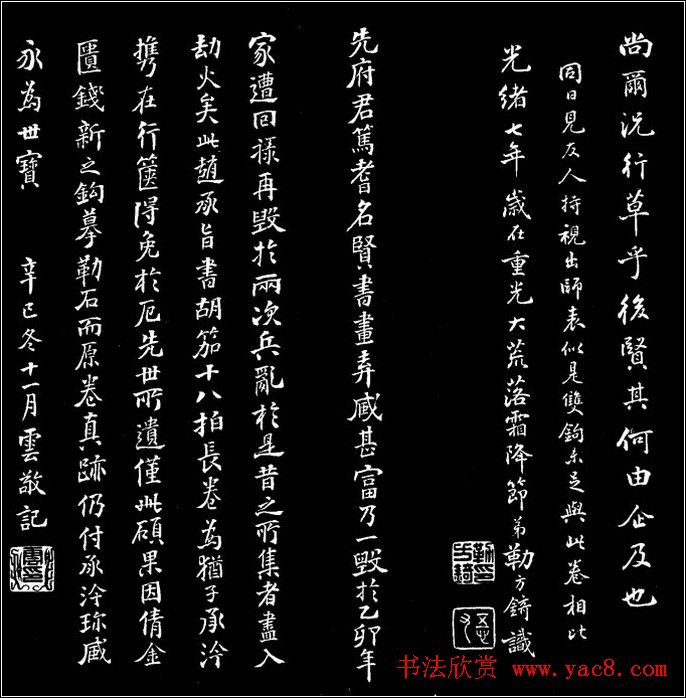 尚爾況行草乎後賢其何由企及也
同日見友人持視出師表似是雙鉤未足與此卷相比
光緒七年歲在重光大荒落霜降節弟勒方錡識
先府君篤耆名賢書畫弆臧甚富乃一毀於乙卯年
家遭回祿再毀於兩次兵亂於是昔之所集者盡入
劫火矣此趙承旨書胡笳十八拍長卷為猶子承泠
攜在行篋得免於厄先世所遺僅此碩果因倩金
匱錢新之鉤摹勒石而原卷真跡仍付承泠珎臧
永為世寶 辛巳冬十一月雲敬記
书法欣赏 www.yac8.com